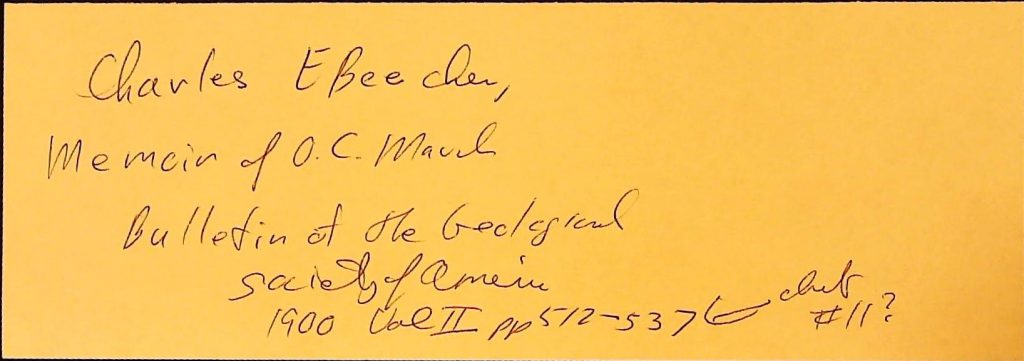 Charles E Beecher,
Memoir of O.C. Marsh
Bulletin of the Geological
Society of America
1900 Vol II pp 512-537 check
#11?